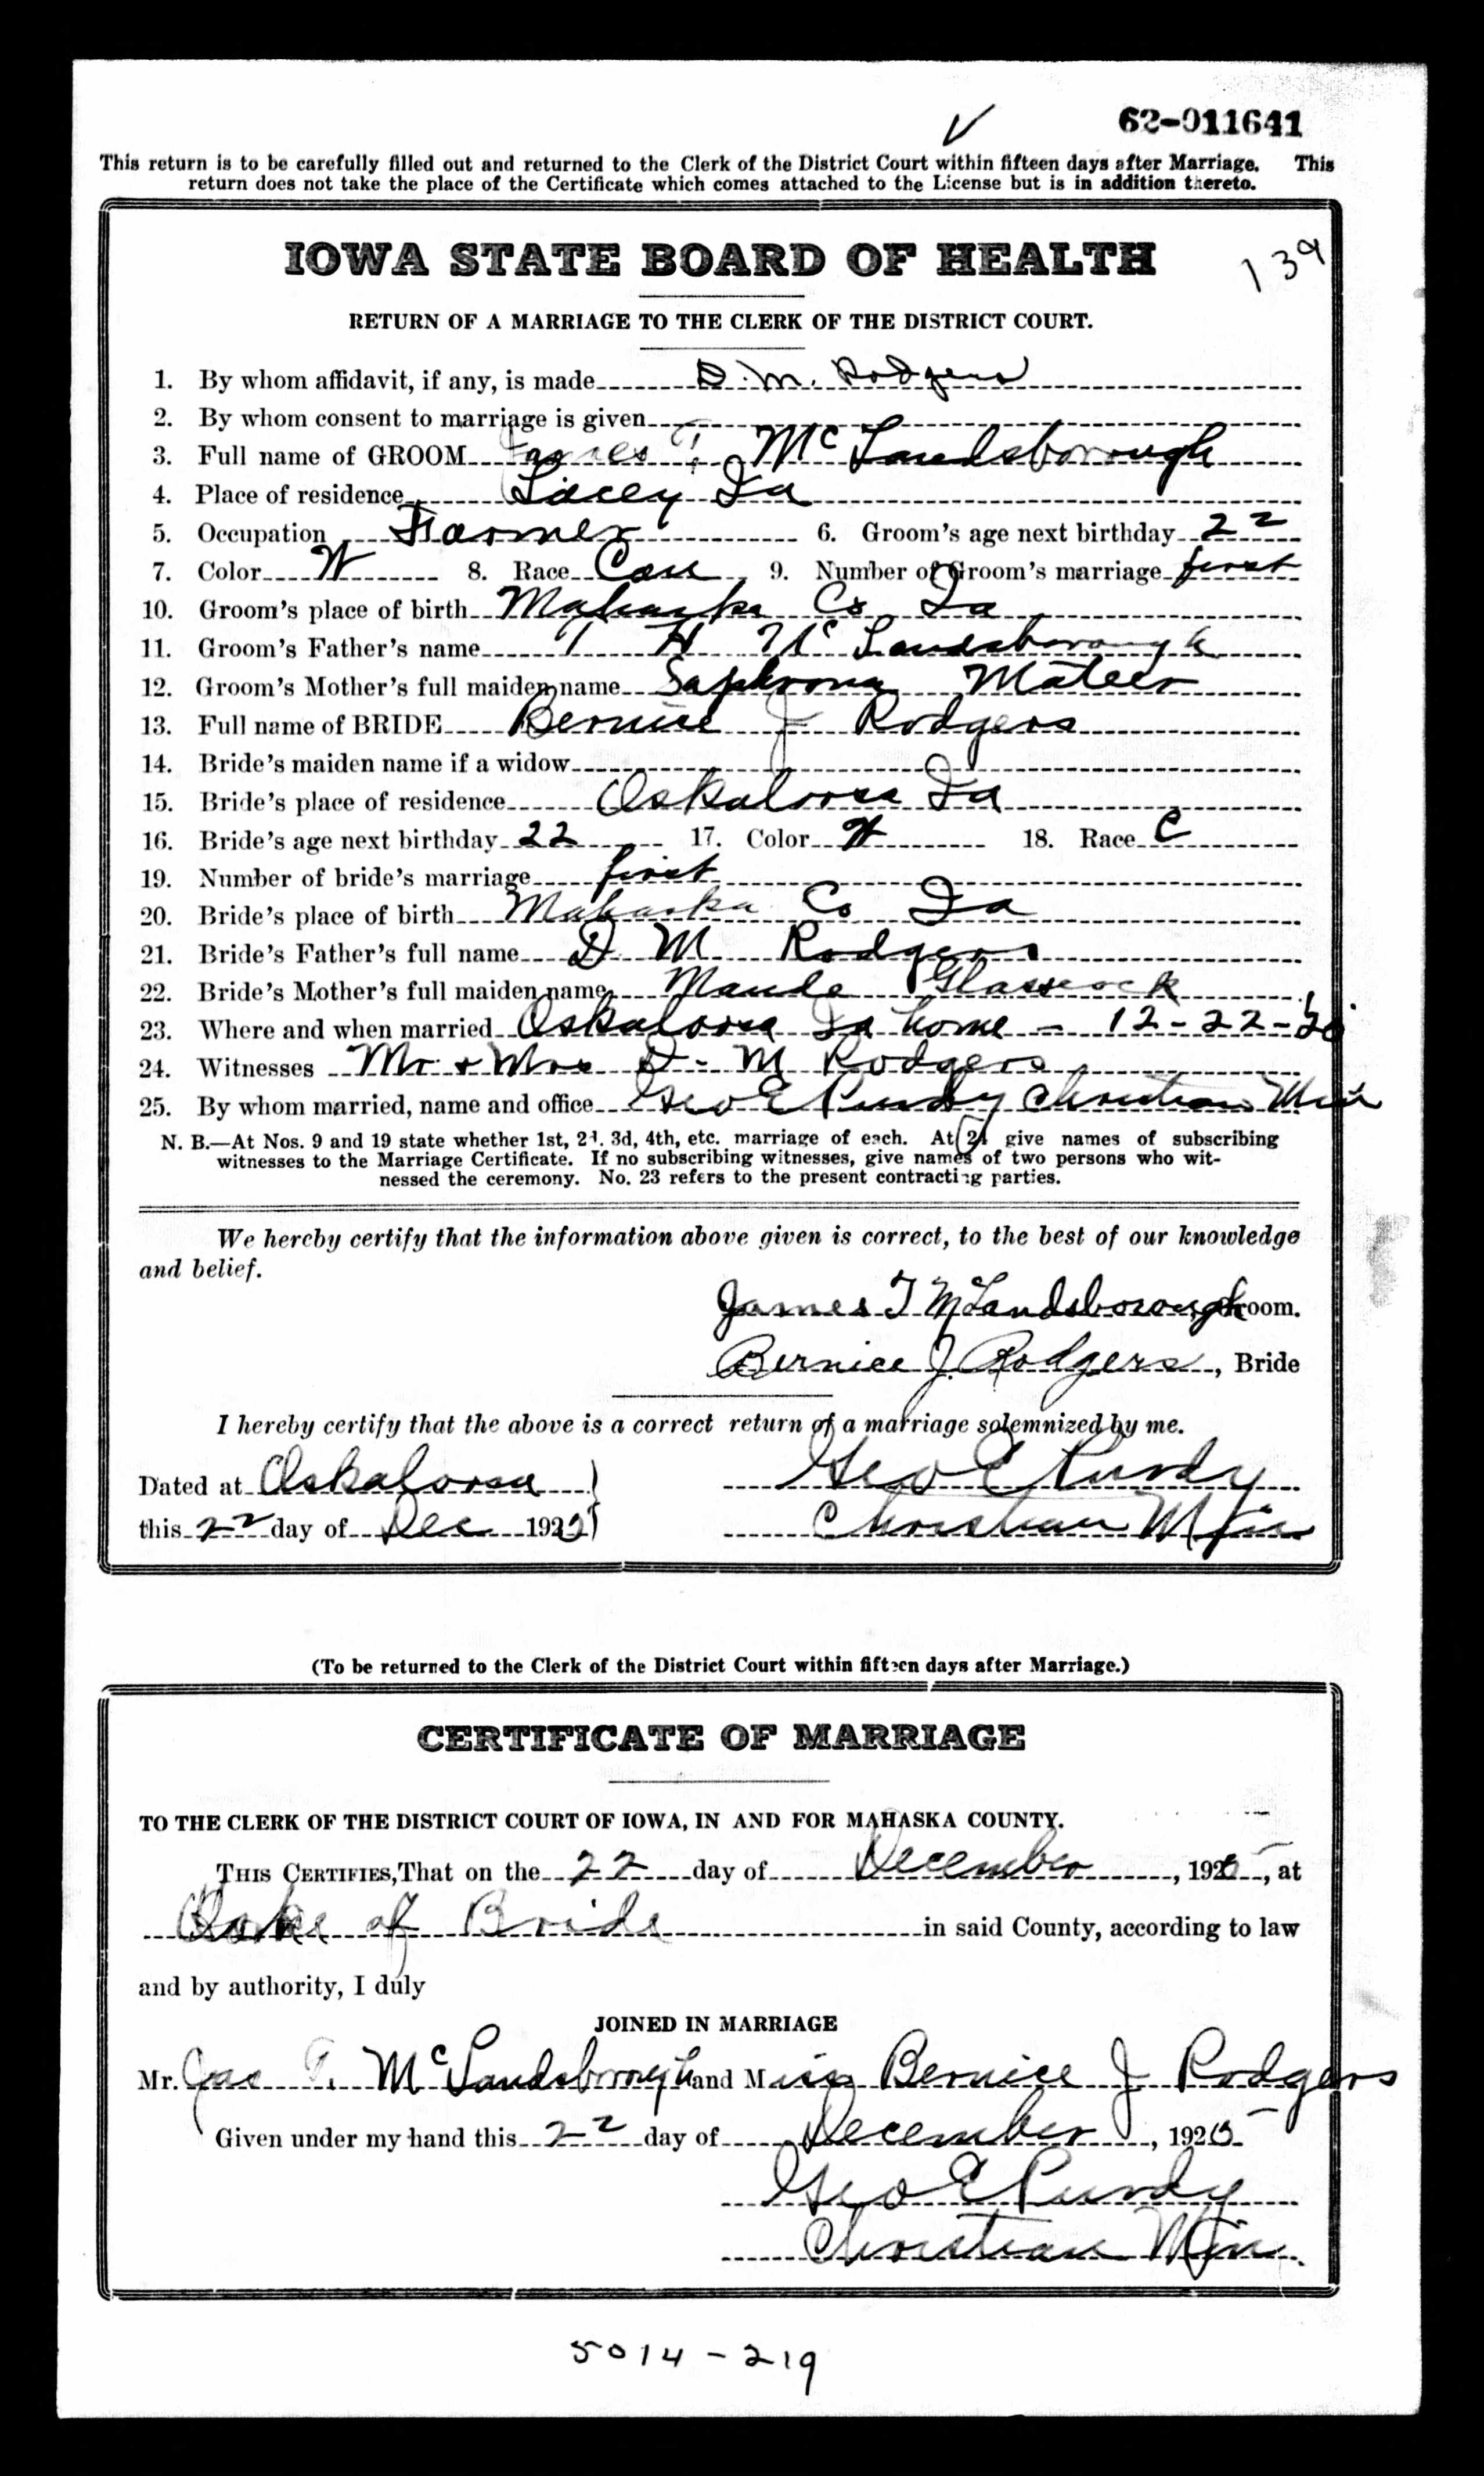 ✓ 62-011641
This return is to be carefully filled out and returned to the Clerk of the District Court within fifteen days after Marriage. This
return does not take the place of the Certificate which comes attached to the License but is in addition thereto.
IOWA STATE BOARD OF HEALTH
139
RETURN OF A MARRIAGE TO THE CLERK OF THE DISTRICT COURT.
1. By whom affidavit, if any, is made D. M. Rodgers
2. By whom consent to marriage is given
3. Full name of GROOM James T. Mc Landsborough
4. Place of residence Lacey Ia
5. Occupation Farmer 6. Groom's age next birthday 22
7. Color W 8. Race Cau 9. Number of Groom's marriage first
10. Groom's place of birth Mahaska Co Ia
11. Groom's Father's name T H Mc Landsborough
12. Groom's Mother's full maiden name Saphrona Mateer
13. Full name of BRIDE Bernice J Rodgers
14. Bride's maiden name if a widow
15. Bride's place of residence Oskaloosa Ia
16. Bride's age next birthday 22 17. Color W 18. Race C
19. Number of bride's marriage first
20. Bride's place of birth Mahaska Co Ia
21. Bride's Father's full name D M Rodgers
22. Bride's Mother's full maiden name Maude Glasscock
23. Where and when married Oskaloosa Ia home - 12-22-'20
24. Witnesses Mr + Mrs D. M Rodgers
25. By whom married, name and office Geo E Purdy Christian Min
N. B.—At Nos. 9 and 19 state whether 1st, 2d. 3d, 4th, etc. marriage of each. At 24 give names of subscribing
witnesses to the Marriage Certificate. If no subscribing witnesses, give names of two persons who wit-
nessed the ceremony. No. 23 refers to the present contracting parties.
We hereby certify that the information above given is correct, to the best of our knowledge
and belief.
James T McLandsborough, Groom.
Bernice J. Rodgers, Bride
I hereby certify that the above is a correct return of a marriage solemnized by me.
Dated at Oskaloosa Geo E Purdy
this 22 day of Dec 1920 Christian Min
(To be returned to the Clerk of the District Court within fifteen days after Marriage.)
CERTIFICATE OF MARRIAGE
TO THE CLERK OF THE DISTRICT COURT OF IOWA, IN AND FOR MAHASKA COUNTY.
THIS CERTIFIES, That on the 22 day of December, 1920, at
of Bride in said County, according to law
and by authority, I duly
JOINED IN MARRIAGE
Mr. Jas T. Mc Landsborough and Miss Bernice J Rodgers
Given under my hand this 22 day of December, 1920
Geo E Purdy
Christian Min.
5014-219